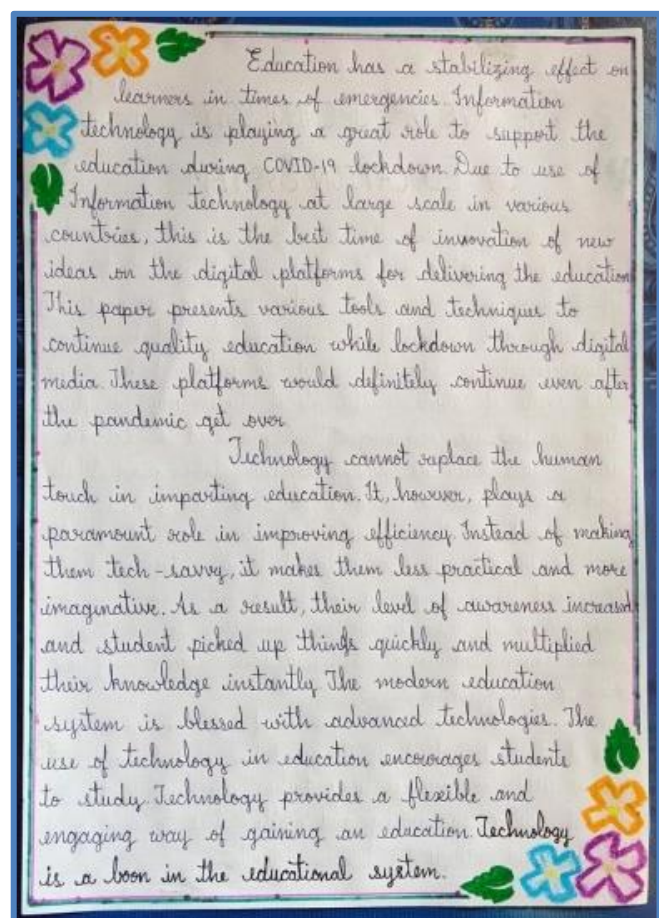 Education has a stabilizing effect on
learners in times of emergencies. Information
technology is playing a great role to support the
education during COVID-19 lockdown. Due to use of
Information technology at large scale in various
countries, this is the best time of innovation of new
ideas on the digital platforms for delivering the education
This paper presents various tools and techniques to
continue quality education while lockdown through digital
media. These platforms would definitely continue even after
the pandemic get over.
Technology cannot replace the human
touch in imparting education. It, however, plays a
paramount role in improving efficiency. Instead of making
them tech-savvy, it makes them less practical and more
imaginative. As a result, their level of awareness increased
and student picked up things quickly and multiplied
their knowledge instantly. The modern education
system is blessed with advanced technologies. The
use of technology in education encourages students
to study. Technology provides a flexible and
engaging way of gaining an education. Technology
is a boon in the educational system.